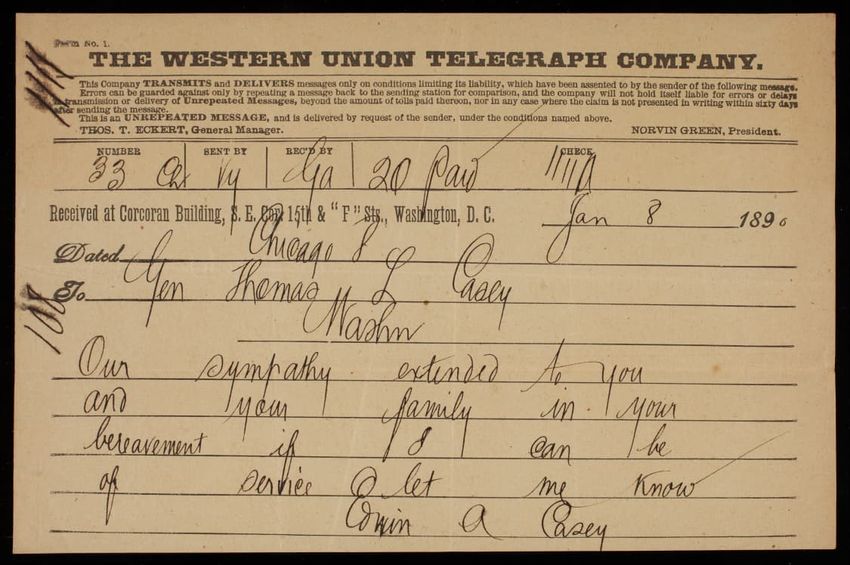 Form No. 1.
THE WESTERN UNION TELEGRAPH COMPANY.
This Company TRANSMITS and DELIVERS messages only on conditions limiting its liability, which have been assented to by the sender of the following message.
Errors can be guarded against only by repeating a message back to the sending station for comparison, and the company will not hold itself liable for errors or delays
in transmission or delivery of Unrepeated Messages, beyond the amount of tolls paid thereon, nor in any case where the claim is not presented in writing within sixty days
after sending the message.
This is an UNREPEATED MESSAGE, and is delivered by request of the sender, under the conditions named above.
THOS. T. ECKERT, General Manager. NORVIN GREEN, President.
NUMBER SENT BY REC'D BY CHECK
33 Ch Vy Ga 20 Paid
Received at Corcoran Building, S. E. Cor. 15th & "F" Sts., Washington, D. C. Jan 8 1890
Dated Chicago 8
To Gen Thomas L Casey
Washn
Our sympathy extended to you
and your family in your
bereavement if I can be
of service let me know
Edwin A Casey